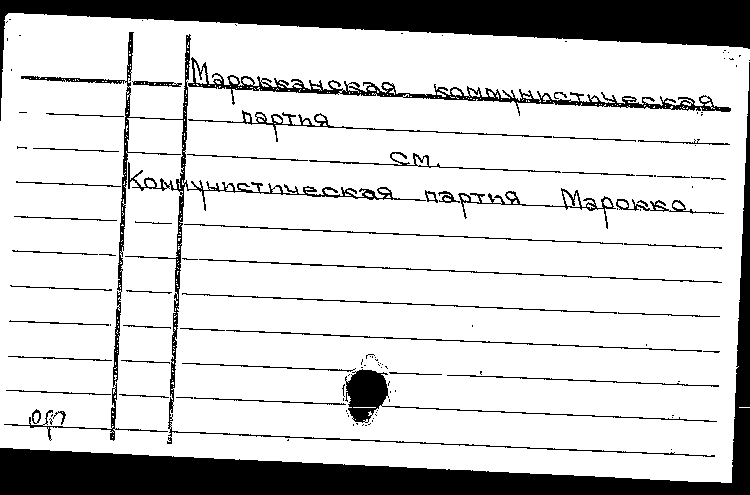 Марокканская коммунистическая
партия
см.
Коммунистическая партия Марокко.
орф